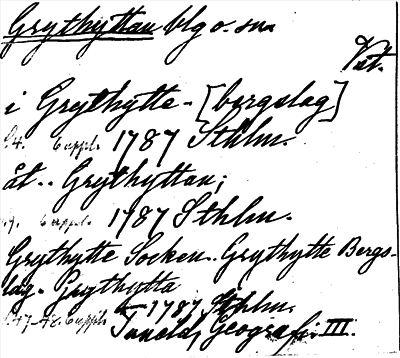 Grythyttan blg o. sn
Vstm.
i Grythytte- [bergslag]
s. 4. 6 uppl. 1787 Sthlm.
åt .. Grythyttan;
6 uppl. 1787 Sthlm.
Grythytte Socken. Grythytte Bergs-
lag. Grythytta
s. 47-48. 6 uppl. 1787 Sthlm.
Tunelds Geografi III.